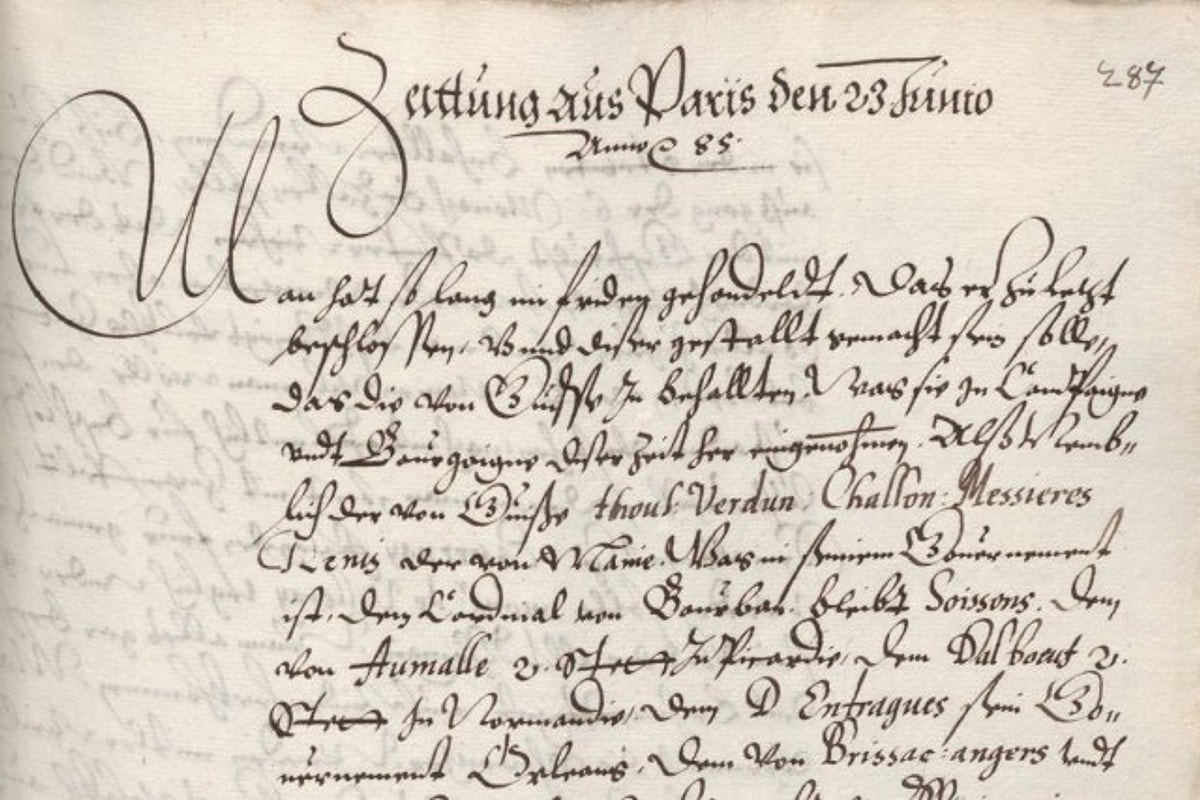 287
Zeittung aus Pariis den 23 Junio
Anno 85.
Man hat so lang im friden gehandeldt. Das er zu letzt
beschlossen, Vnnd diser gestallt gemacht sein solle,
das die von Guisse In behallten, Was sie In Campaigne
vndt Bourgoigne diser Zeit her eingenohmen. Alß Nemb„
lich der von Guiße thoul. Verdun. Challon: Messieres
der von Maine. Was in seinem Gouuernement
ist, dem Cardinal von Bourbon bleibt Soissons. Dem
von Aumalle 2. Stett In Picardie, Dem Dalboeuf 2.
Stett In Normandie, Dem D Entragues sein Go„
uernement Orleans, Dem von Brissac: angers vndt